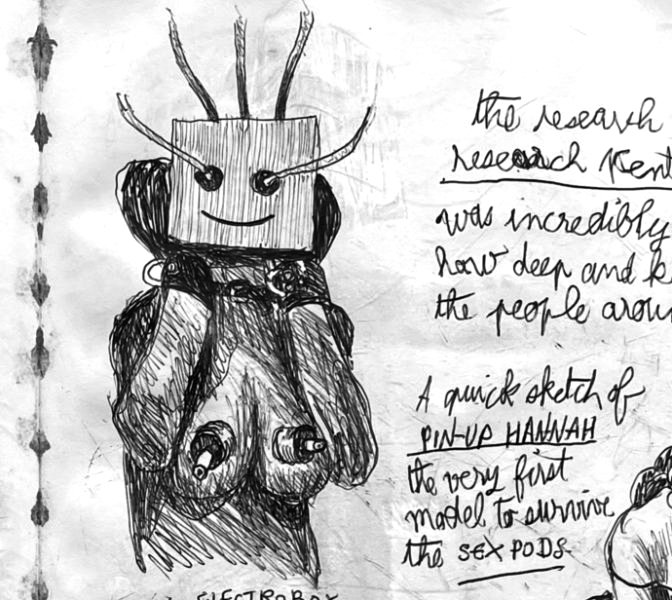 the research
research Kent
was incredibly
how deep and k
the people arou
A quick sketch of
PIN-UP HANNAH
the very first
model to survive
the SEX PODS
ELECTROBOX